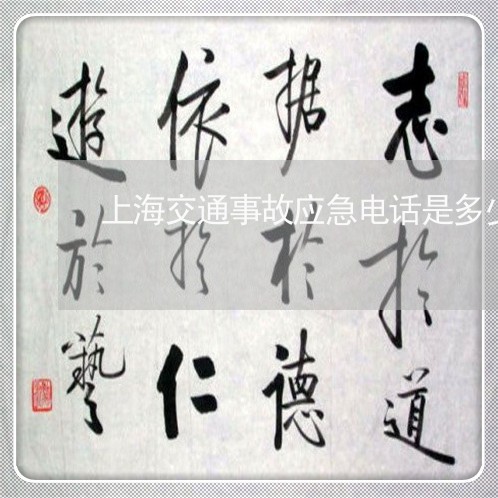 志於道
据於德
依於仁
遊於藝
上海交通事故应急电话是多少